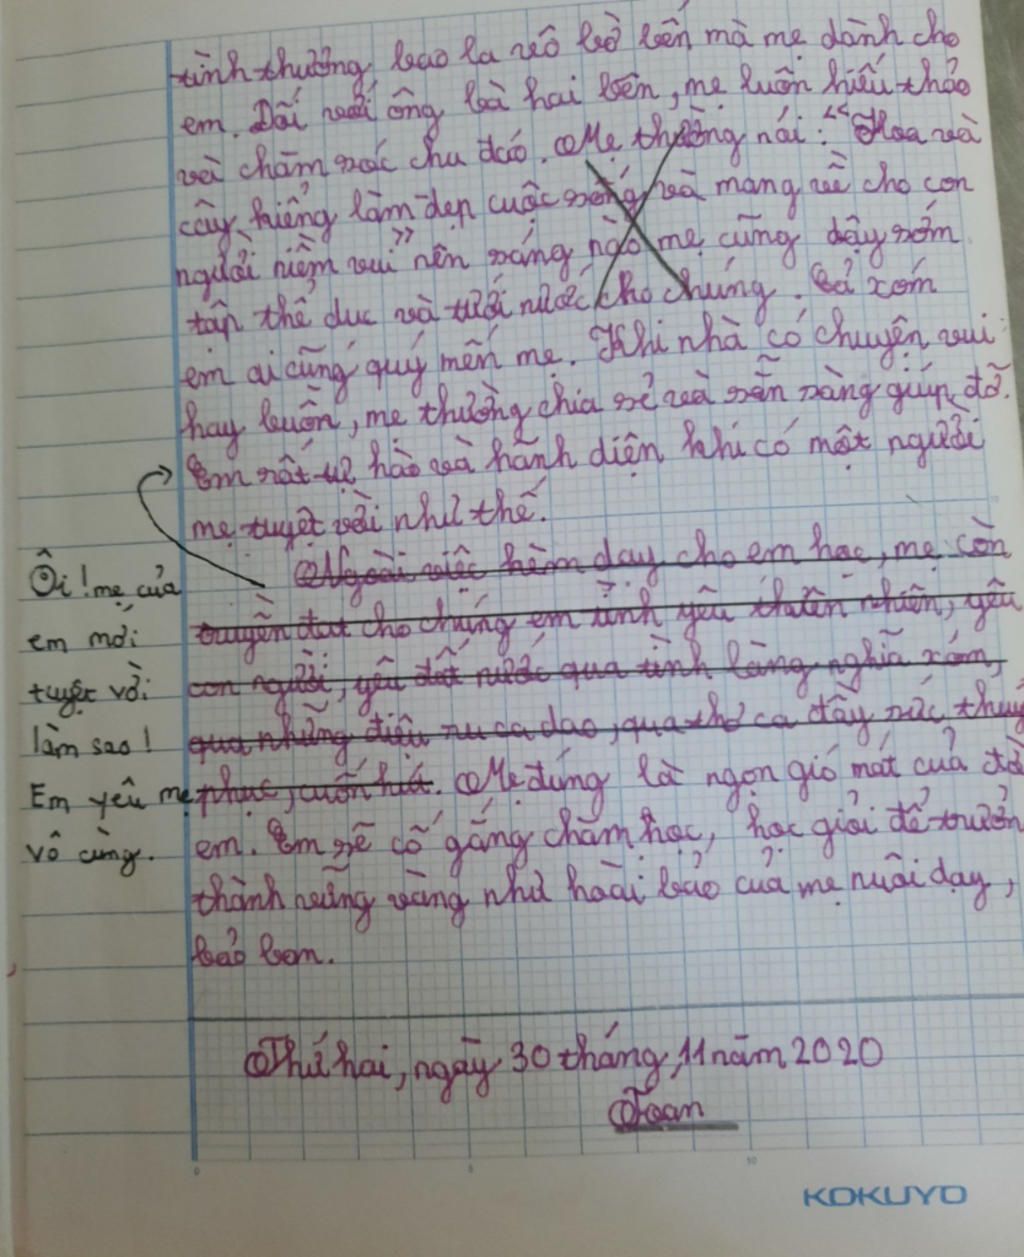 tình thương bao la vô bờ bến mà mẹ dành cho
em. Đối với ông bà hai bên, mẹ luôn hiếu thảo
và chăm sóc chu đáo. Mẹ thường nói: "Hoa và
cây kiểng làm đẹp cuộc sống và mang về cho con
người niềm vui" nên sáng nào mẹ cũng dậy sớm
tập thể dục và tưới nước cho chúng. Cả xóm
em ai cũng quý mến mẹ. Khi nhà có chuyện vui
hay buồn, mẹ thường chia sẻ và sẵn sàng giúp đỡ.
Em rất tự hào và hãnh diện khi có một người
mẹ tuyệt vời như thế.
Ngoài việc kèm dạy cho em học, mẹ còn
truyền đạt cho chúng em tình yêu thiên nhiên, yêu
con người, yêu đất nước qua tình làng nghĩa xóm,
qua những điệu ru ca dao, qua thơ ca đầy sức thuyết
phục, cuốn hút. Mẹ đúng là ngọn gió mát của đời
em. Em sẽ cố gắng chăm học, học giỏi để trưởng
thành vững vàng như hoài bảo của mẹ nuôi dạy,
bảo ban.
Ôi! mẹ của
em mới
tuyệt vời
làm sao!
Em yêu mẹ
vô cùng.
Thứ hai, ngày 30 tháng 11 năm 2020
Toán
0 5 10
KOKUYO